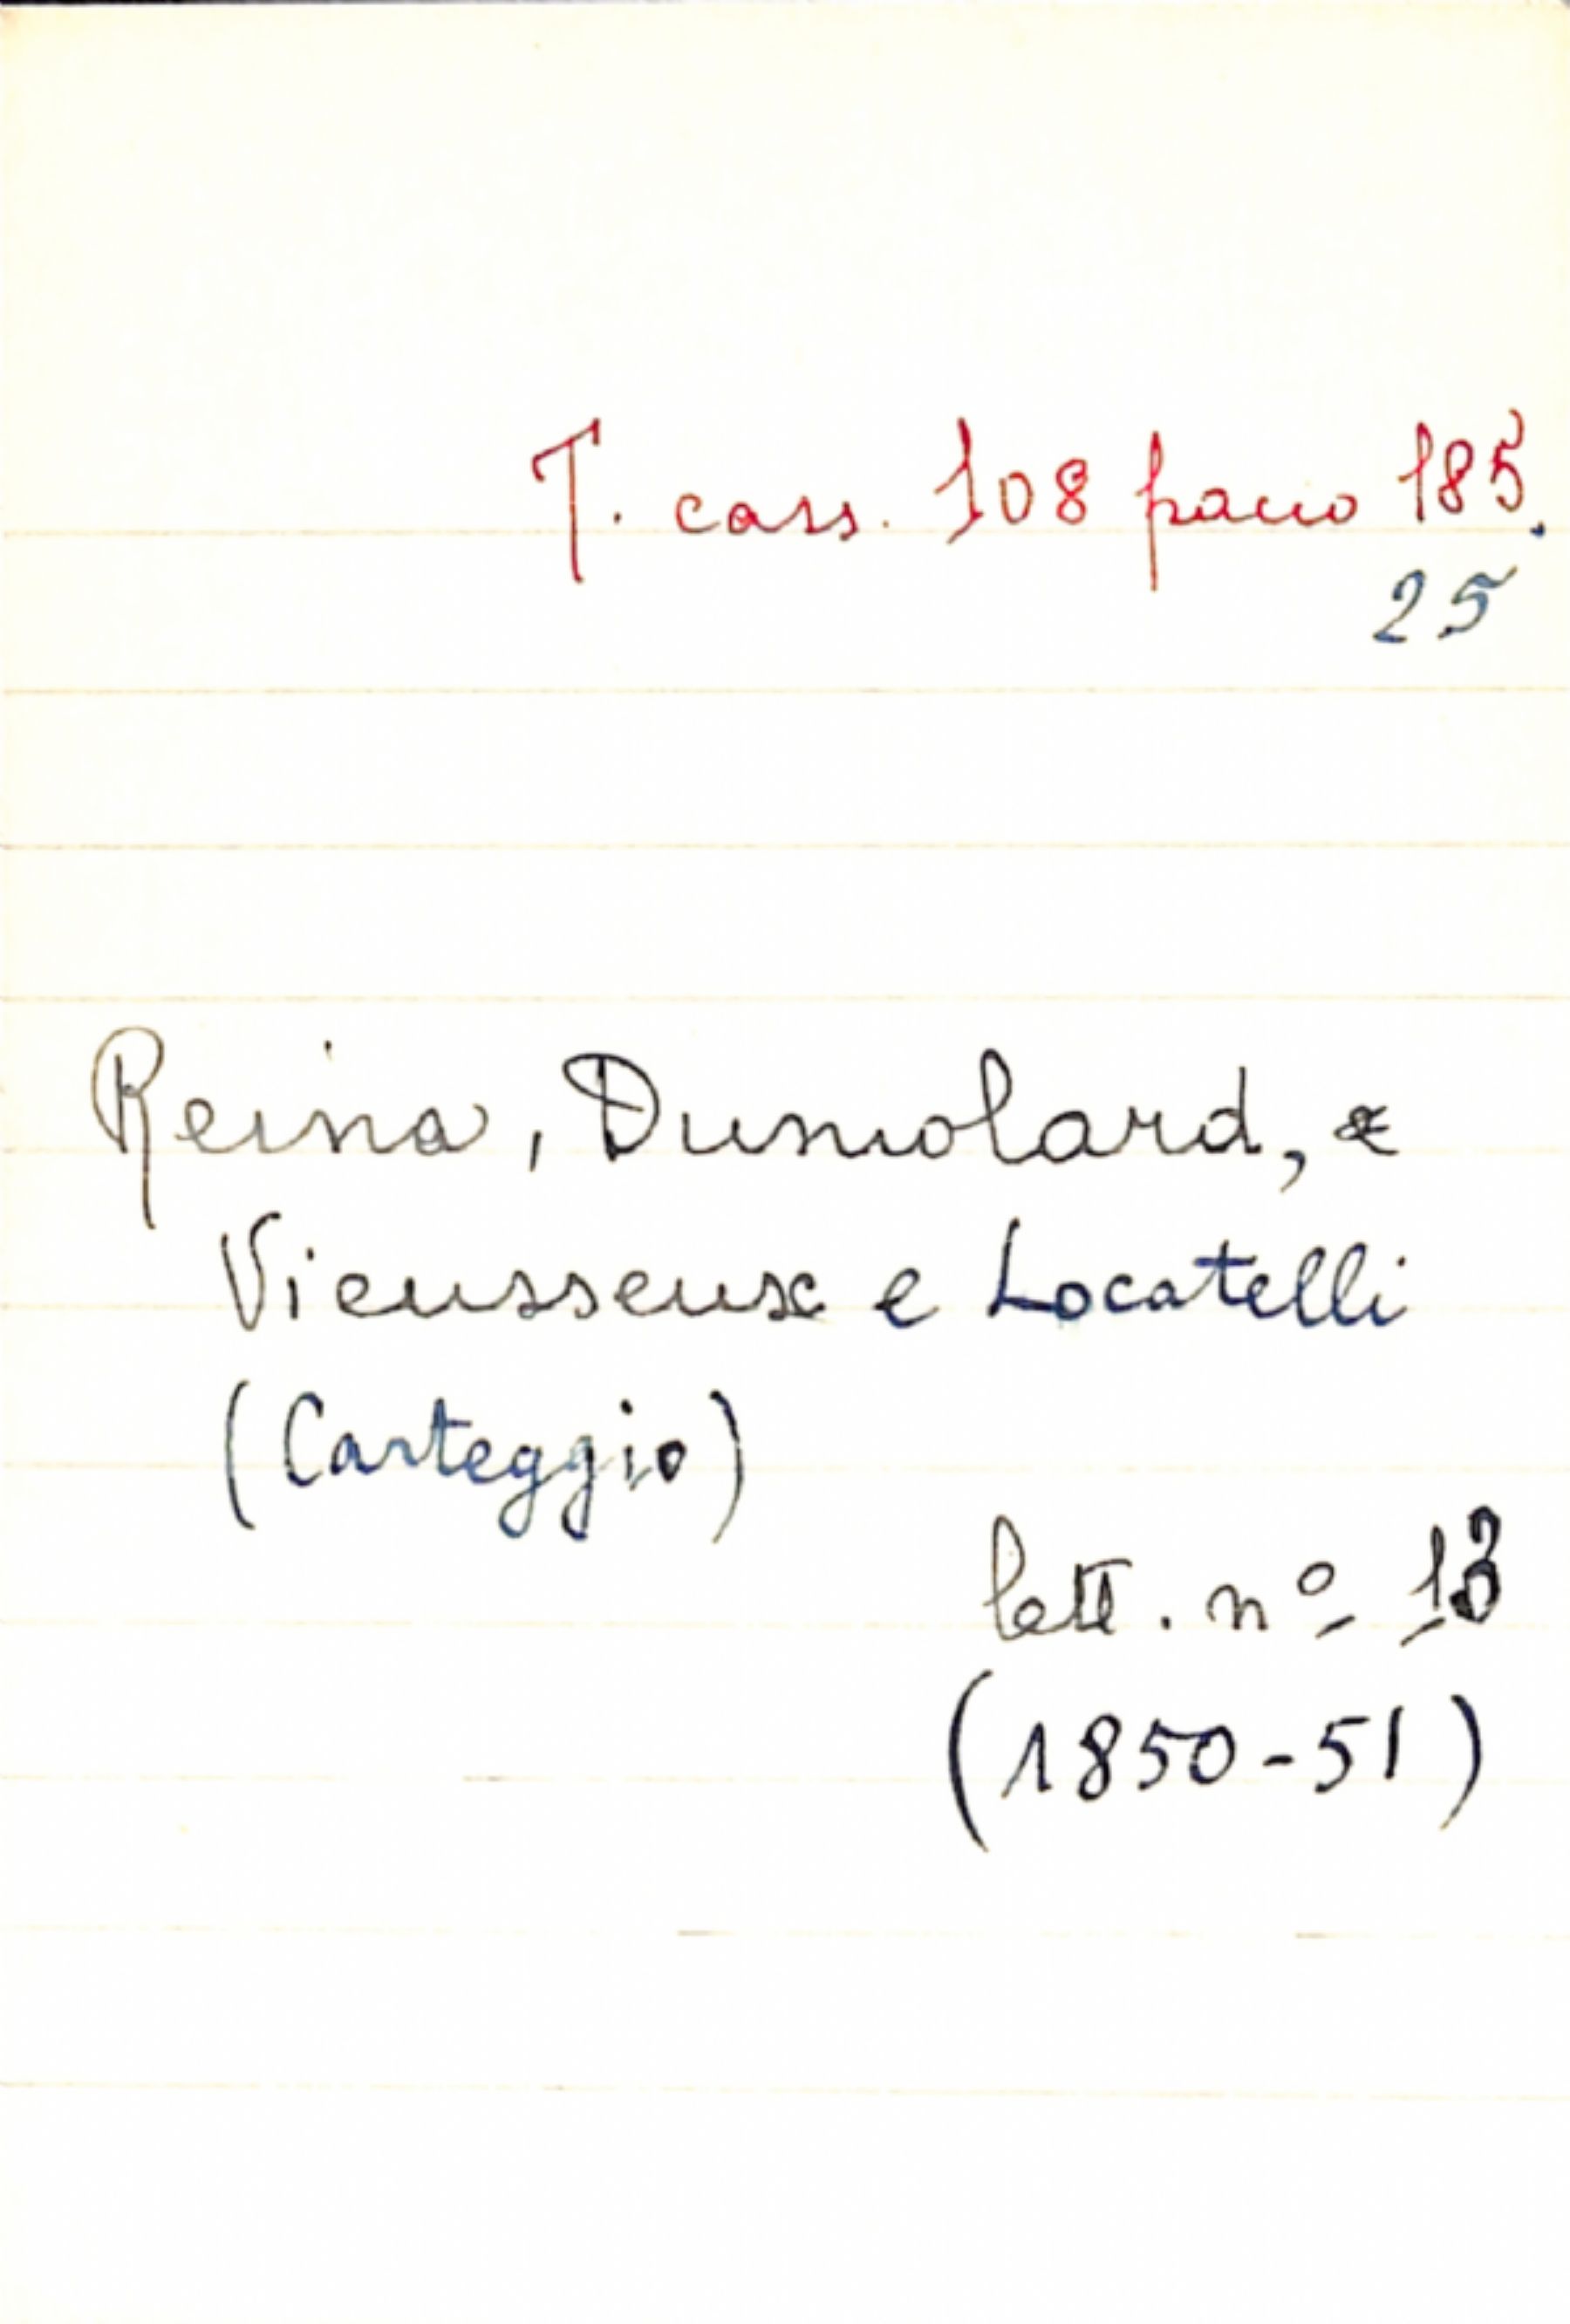 T. cass. 108 pacco 185.
25
Reina, Dumolard,
Vieusseux e Locatelli
(Carteggio)
lett. nº 13
(1850-51)